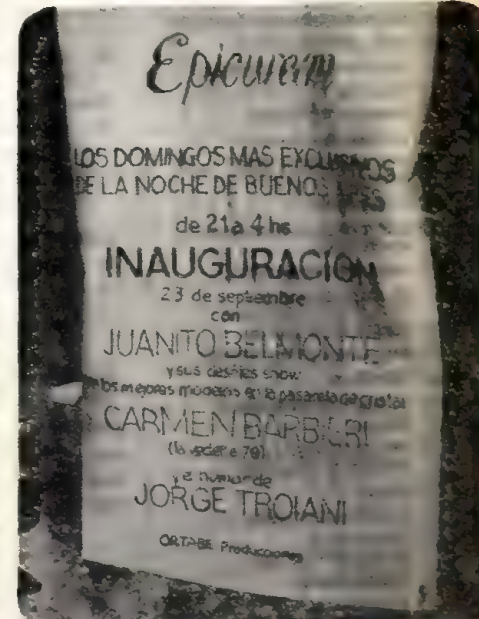 Epicuren
LOS DOMINGOS MAS EXCLUSIVOS
DE LA NOCHE DE BUENOS AIRES
de 21 a 4 hs
INAUGURACION
23 de septiembre
con
JUANITO BELMONTE
y sus desfiles show
los mejores modelos en la pasarela de cristal
CARMEN BARBIERI
(la vedette 79)
y el humor de
JORGE TROIANI
ORTABE Producciones